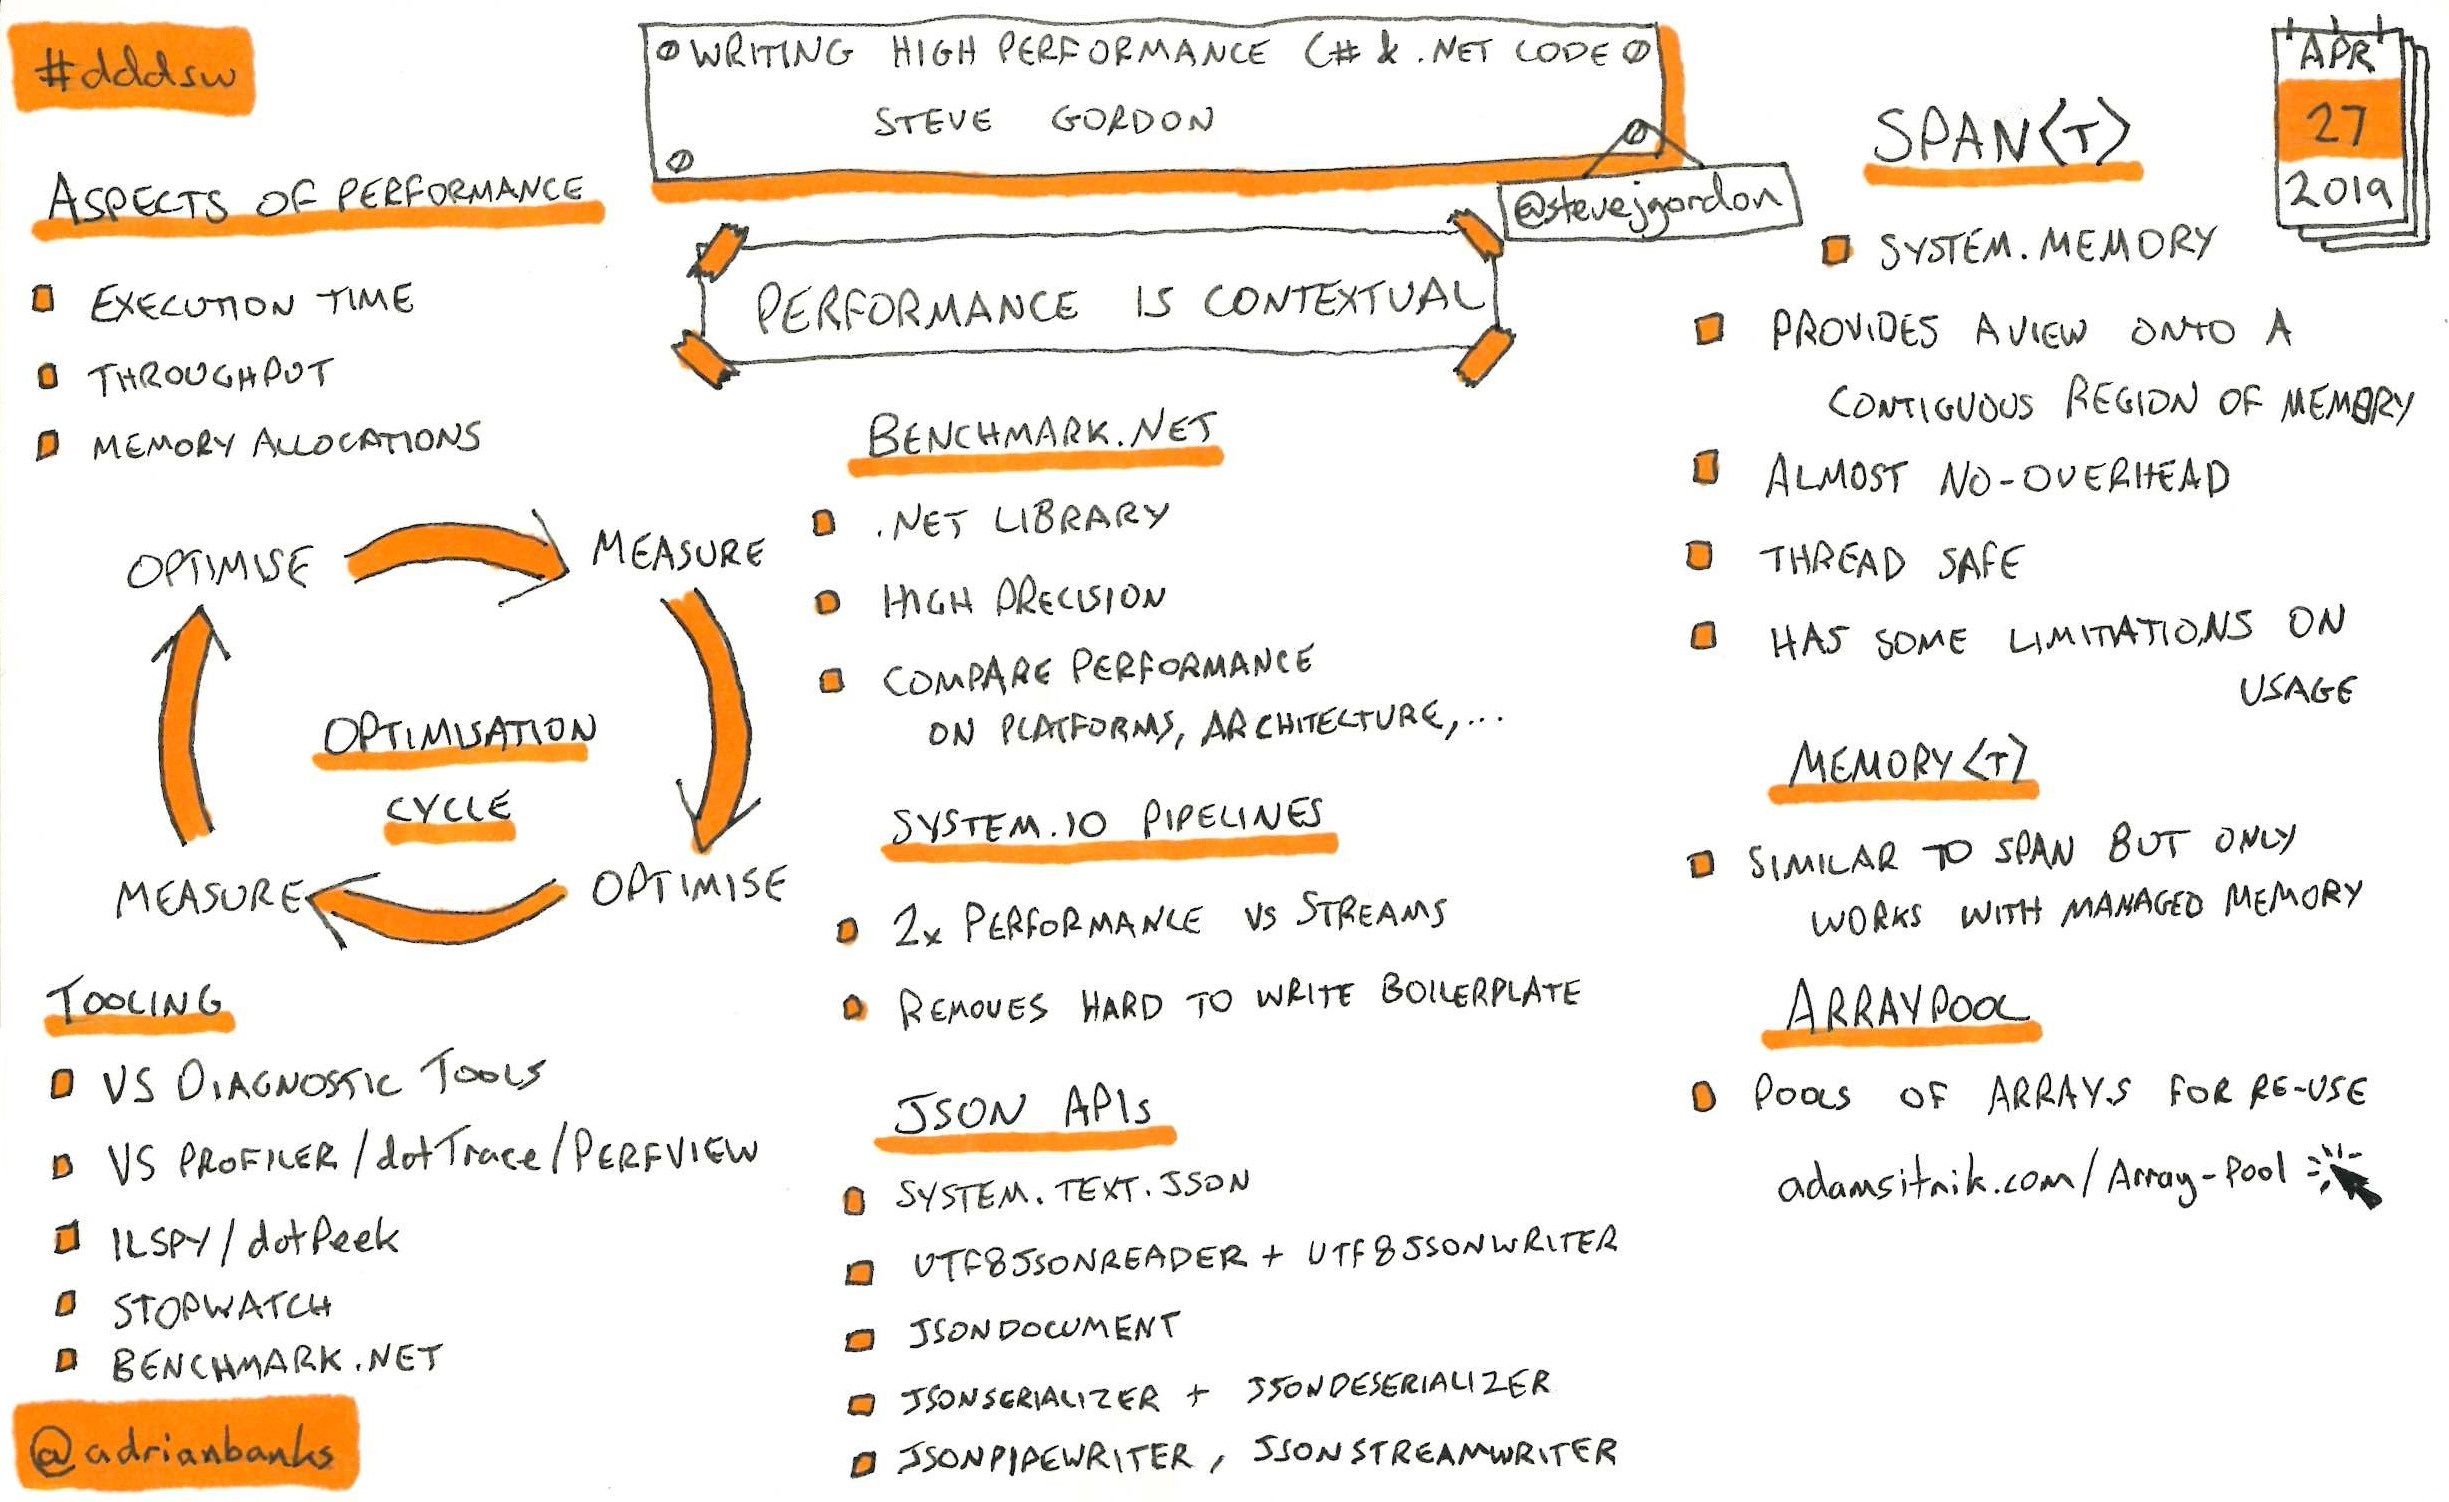 #dddsw
WRITING HIGH PERFORMANCE C# & .NET CODE
STEVE GORDON
@stevejgordon
APR
27
2019
PERFORMANCE IS CONTEXTUAL
ASPECTS OF PERFORMANCE
EXECUTION TIME
THROUGHPUT
MEMORY ALLOCATIONS
OPTIMISE
MEASURE
OPTIMISE
MEASURE
OPTIMISATION
CYCLE
TOOLING
VS DIAGNOSTIC TOOLS
VS PROFILER/dotTrace/PERFVIEW
ILSPY/dotPeek
STOPWATCH
BENCHMARK.NET
@adrianbanks
BENCHMARK.NET
.NET LIBRARY
HIGH PRECISION
COMPARE PERFORMANCE
ON PLATFORMS, ARCHITECTURE,...
SYSTEM.IO PIPELINES
2x PERFORMANCE VS STREAMS
REMOVES HARD TO WRITE BOILERPLATE
JSON APIs
SYSTEM.TEXT.JSON
UTF8JSONREADER + UTF8JSONWRITER
JSONDOCUMENT
JSONSERIALIZER + JSONDESERIALIZER
JSONPIPEWRITER, JSONSTREAMWRITER
SPAN<T>
SYSTEM.MEMORY
PROVIDES A VIEW ONTO A
CONTIGUOUS REGION OF MEMORY
ALMOST NO-OVERHEAD
THREAD SAFE
HAS SOME LIMITATIONS ON
USAGE
MEMORY<T>
SIMILAR TO SPAN BUT ONLY
WORKS WITH MANAGED MEMORY
ARRAYPOOL
POOLS OF ARRAYS FOR RE-USE
adamsitnik.com/Array-Pool